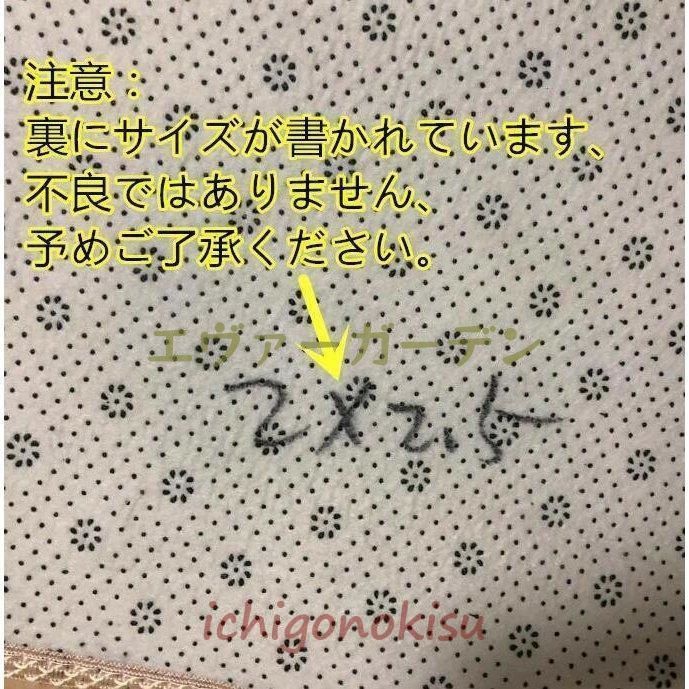 注意：
裏にサイズが書かれています、
不良ではありません、
予めご了承ください。
エヴァーガーデン
2×2.5
ichigonokisu